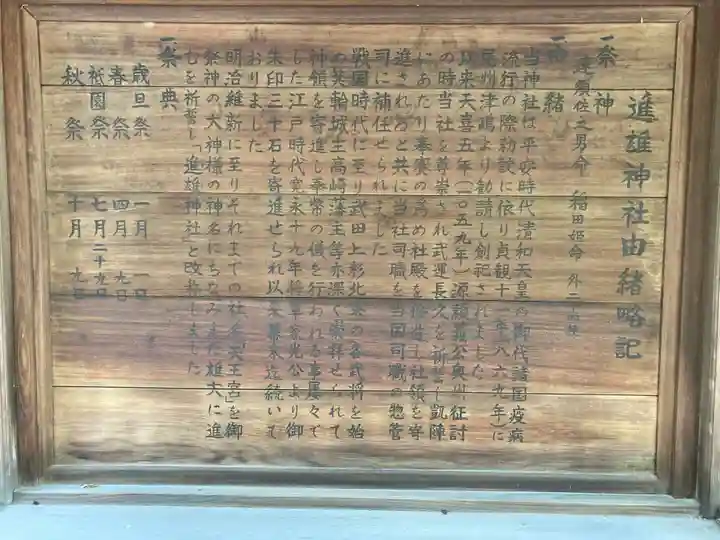 進雄神社由緒略記
一祭神
速須佐之男命 稲田姫命 外二十四柱
一由緒
当神社は平安時代清和天皇の御代諸国疫病
流行の際勅諚に依り貞観十一年(八六九年)に
尾州津嶋より勧請し創祀されました
以来天喜五年(一〇五九年)源頼義公奥州征討
の時当社を尊崇され武運長久を祈誓し凱陣
にあたり奉賽の為め社殿を 社領を寄
進されると共に当社司職を当国司職の惣菅
司に補任せられました
戦国時代に至り武田上杉北条の各武将を始
め箕輪城主高崎藩主等亦深く崇拝せられて
神領を寄進し奉幣の儀を行われる事屡々で
した江戸時代寛永十九年将軍家光公より御
朱印三十石を寄進せられ以来幕末迄続いて
おりました
明治維新に至りそれまでの社名「天王宮」を御
祭神の大神様の神名にちなみまた雄大に進
むを祈誓し「進雄神社」と改称しました
一祭典
歳旦祭 一月 一日
春祭 四月 九日
祇園祭 七月二十五日
秋祭 十月 九日